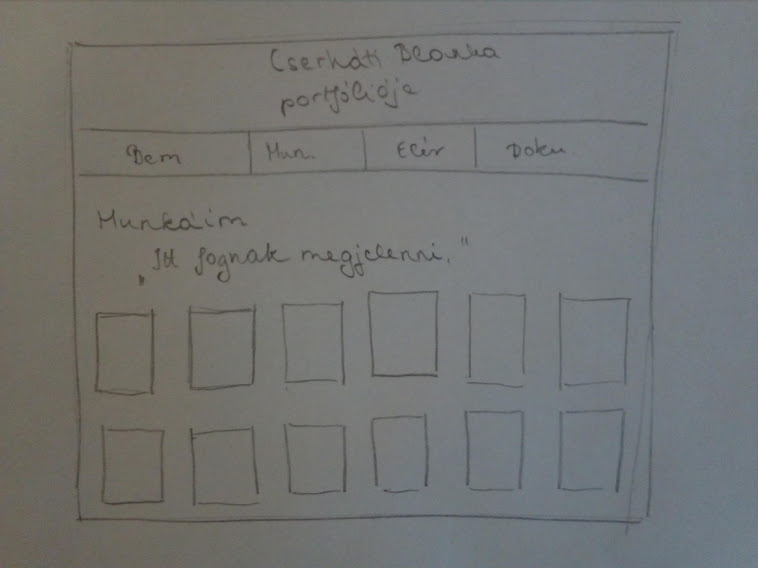 Cserháti Blanka
portfóliója
Bem Mun. Elér Doku
Munkáim
„Itt fognak megjelenni."